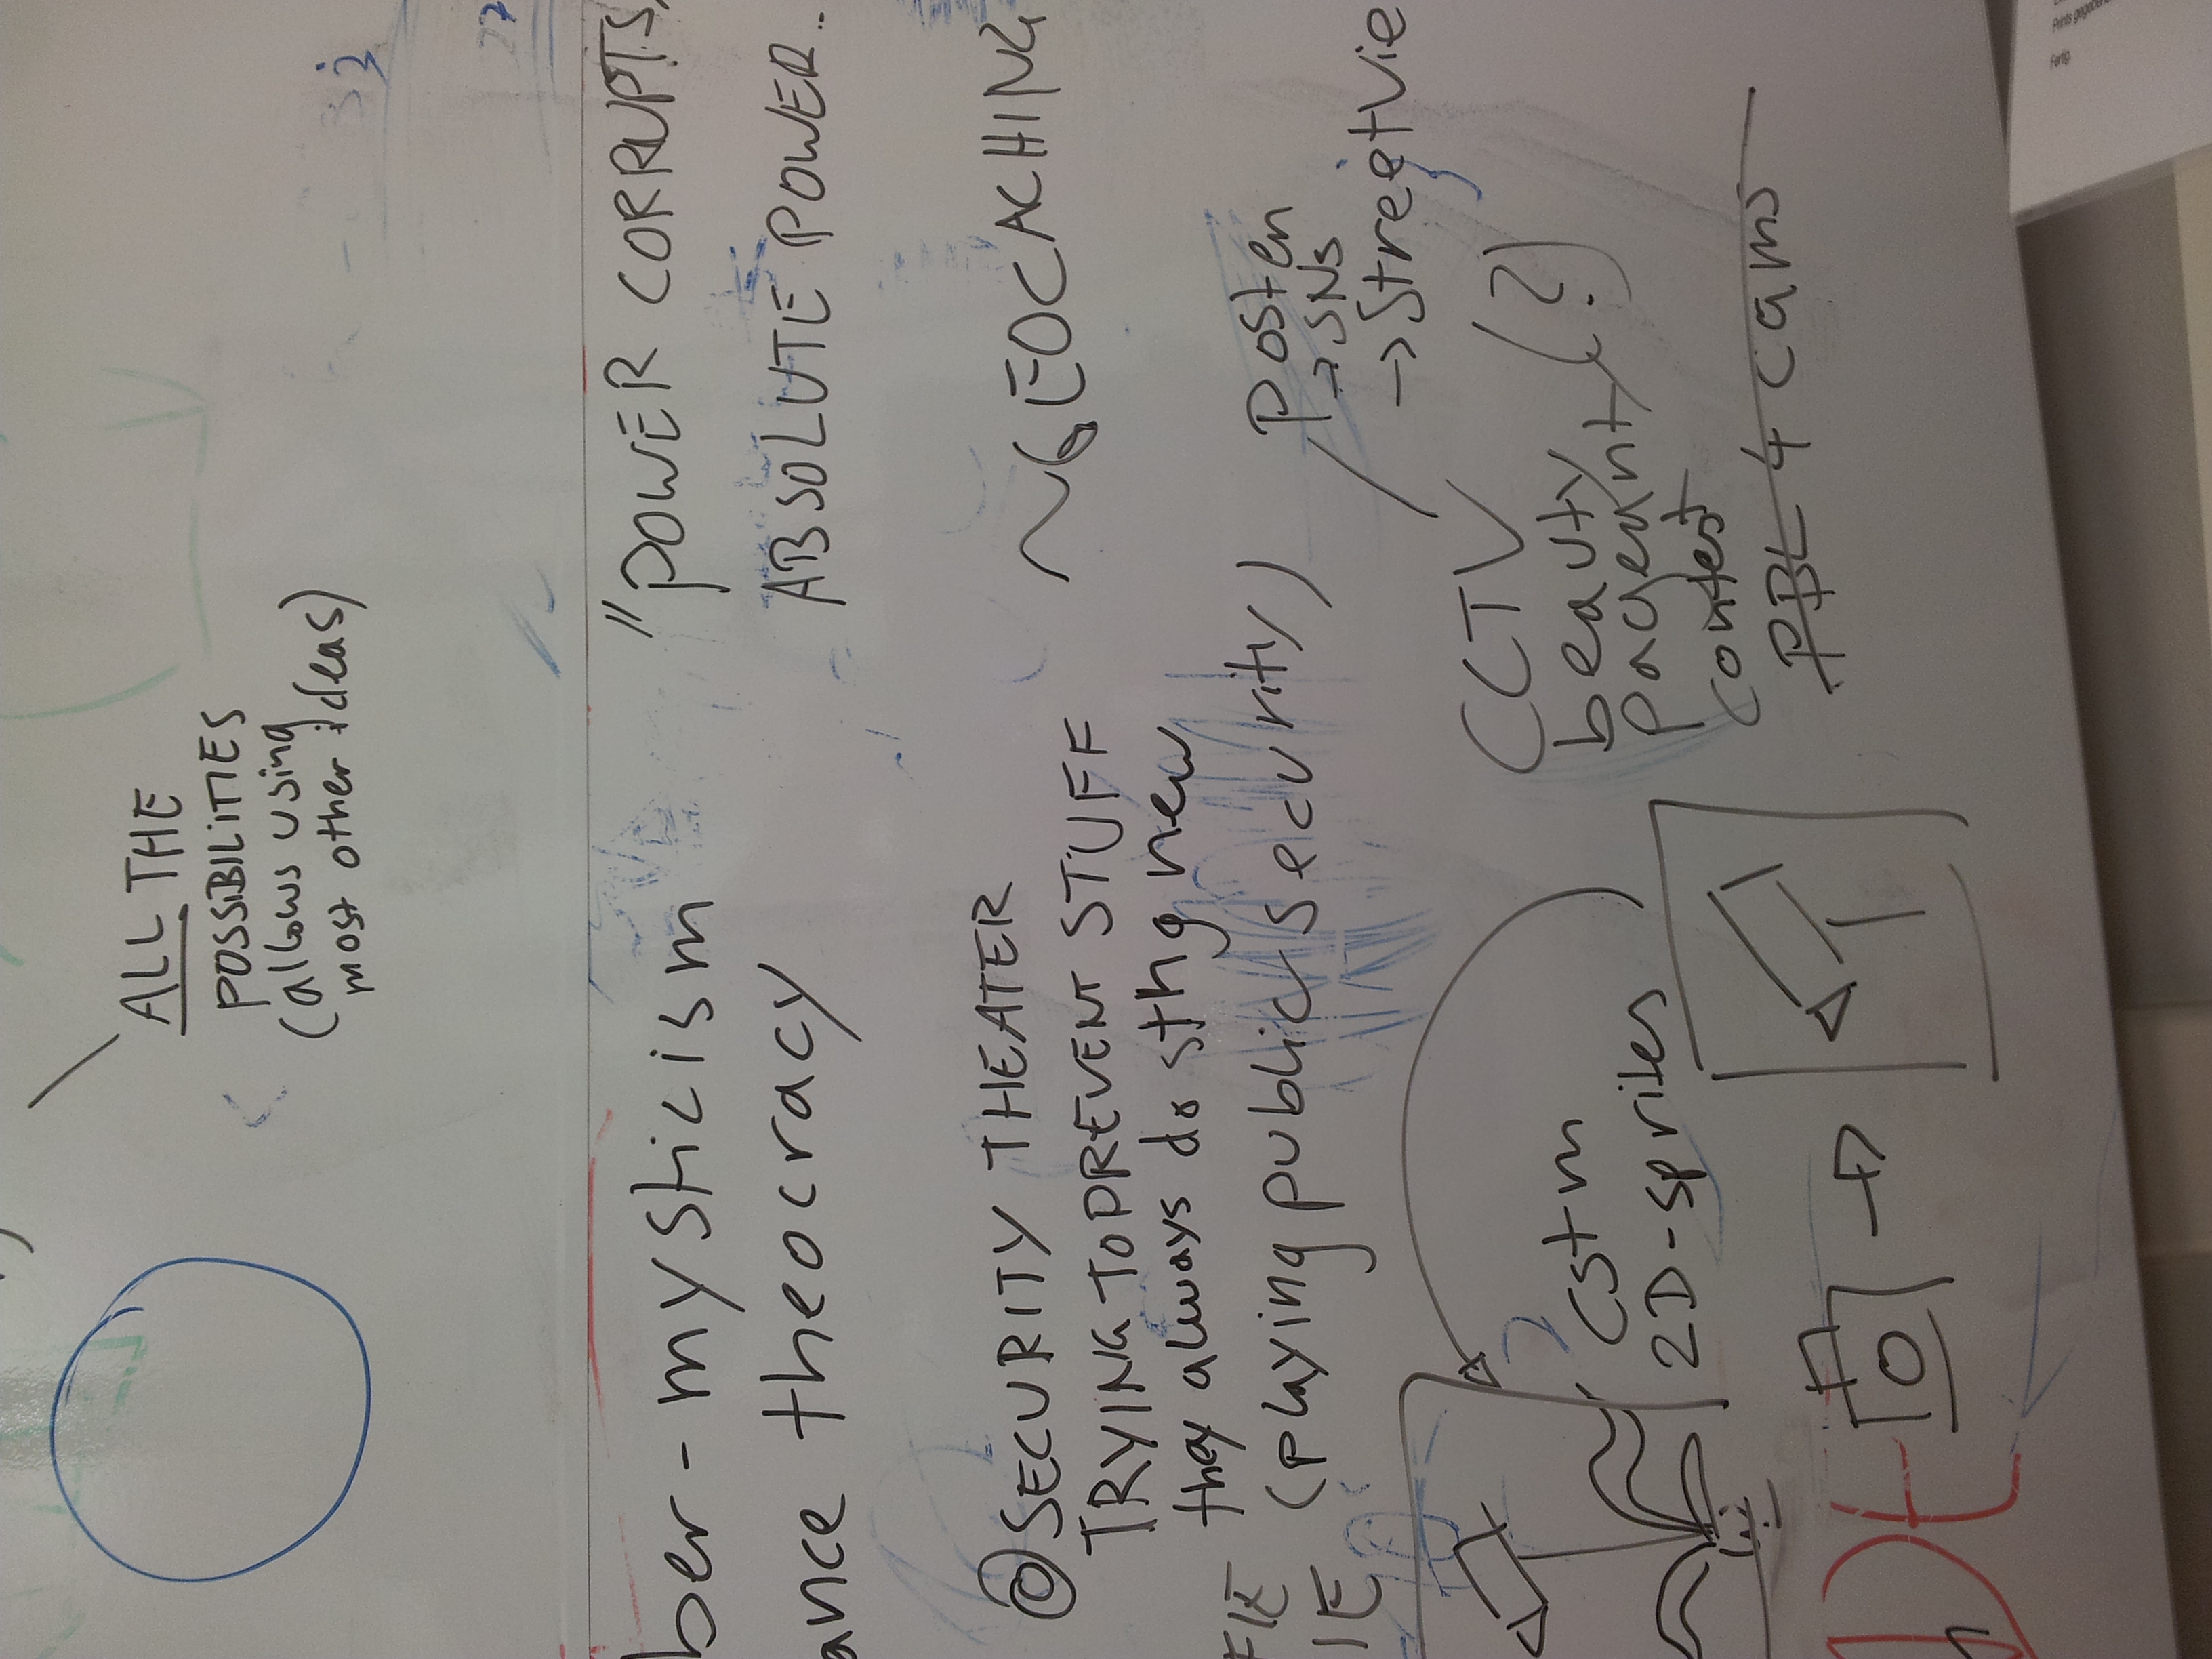 ALL THE
POSSIBILITIES
(allows using
most other ideas)
ber-mysticism
ance theocracy
"POWER CORRUPTS,
ABSOLUTE POWER..
SECURITY THEATER
TRYING TO PREVENT STUFF
they always do sthg new
(playing public security)
FIE
IE
~GEOCACHING
posten
→ SNs
→ StreetVie
CCTV
beauty
pageant (?)
contest
PBL 4 cams
cstm
2D-sprites
DE